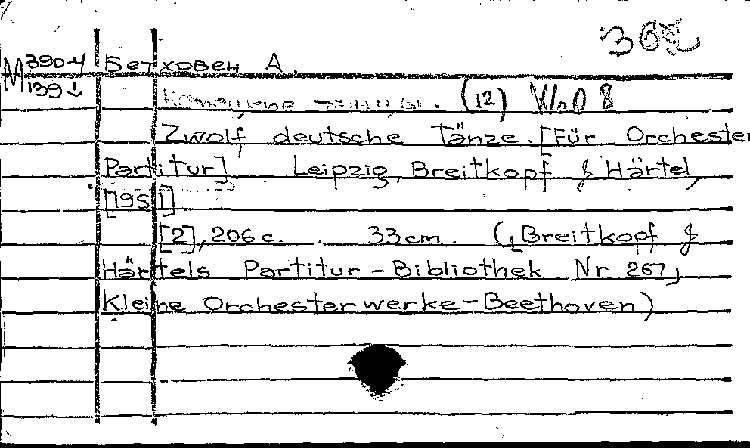 362
M 390-4 Бетховен А.
139↓
(12) WoO 8
Zwölf deutsche Tänze. [Für Orchester
Partitur]. Leipzig, Breitkopf & Härtel,
[1951]
[2], 206 с. 33 cm. (Breitkopf &
Härtels Partitur-Bibliothek Nr 267,
Kleine Orchesterwerke-Beethoven)